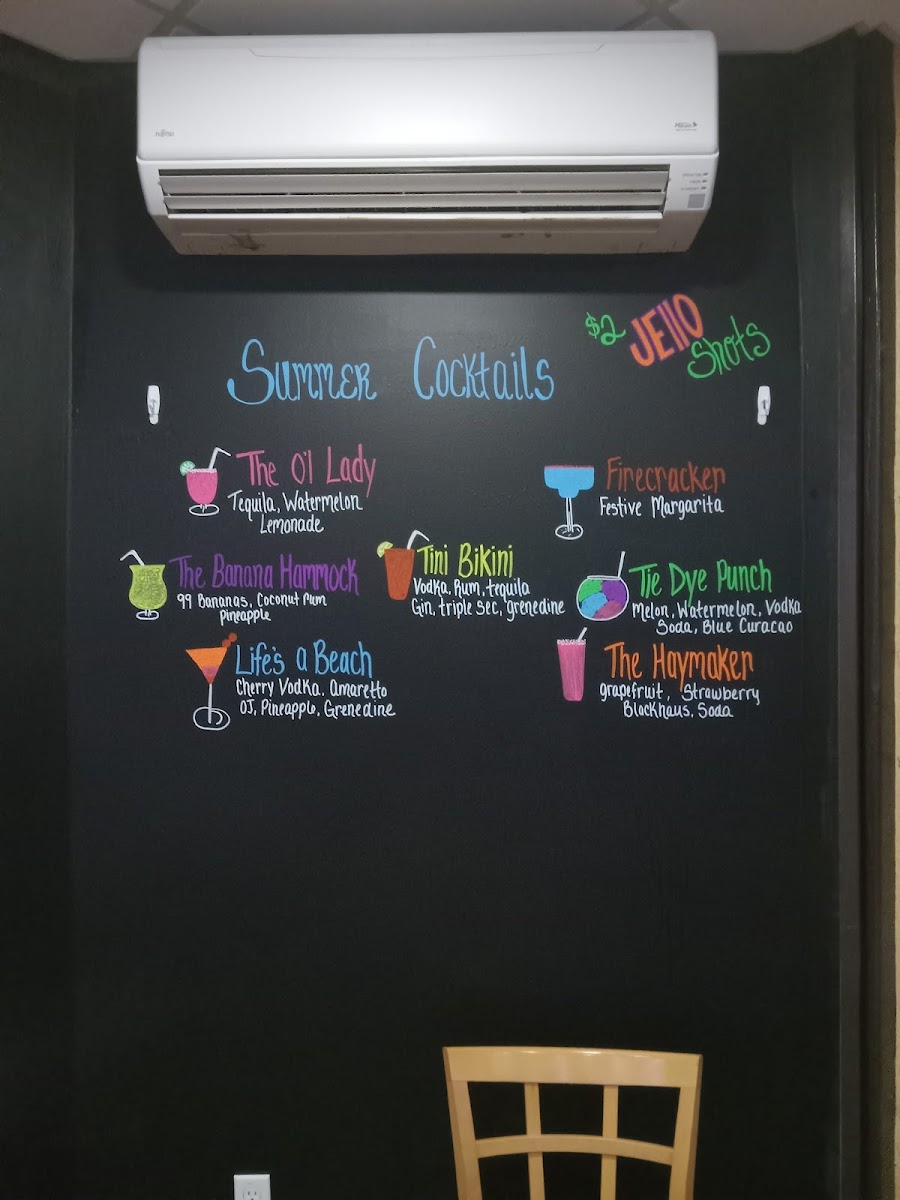 FUJITSU
$2 JEllO Shots
Summer Cocktails
The O'l Lady
Tequila, Watermelon
Lemonade
Firecracker
Festive Margarita
The Banana Hammock
99 Bananas, Coconut Rum
Pineapple
Tini Bikini
Vodka, Rum, tequila
Gin, triple sec, grenedine
Tie Dye Punch
Melon, Watermelon, Vodka
Soda, Blue Curacao
Life's a Beach
Cherry Vodka, amaretto
OJ, Pineapple, Grenedine
The Haymaker
grapefruit, Strawberry
Blackhaus, Soda